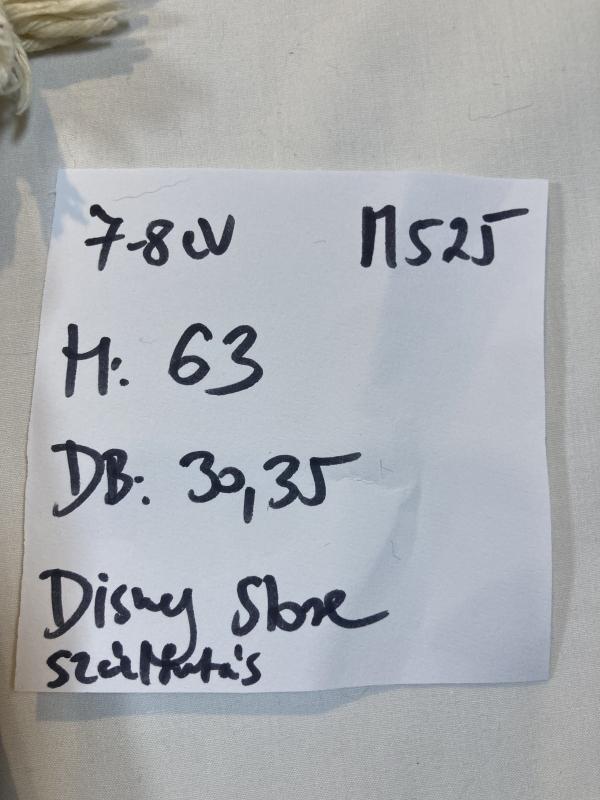 7-8 év M525
H: 63
DB: 30,35
Disney Store
szálfutás